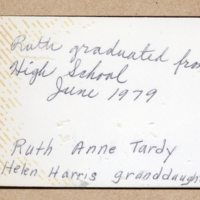 Ruth graduated from
High School
June 1979
Ruth Anne Tardy
Helen Harris granddaugh